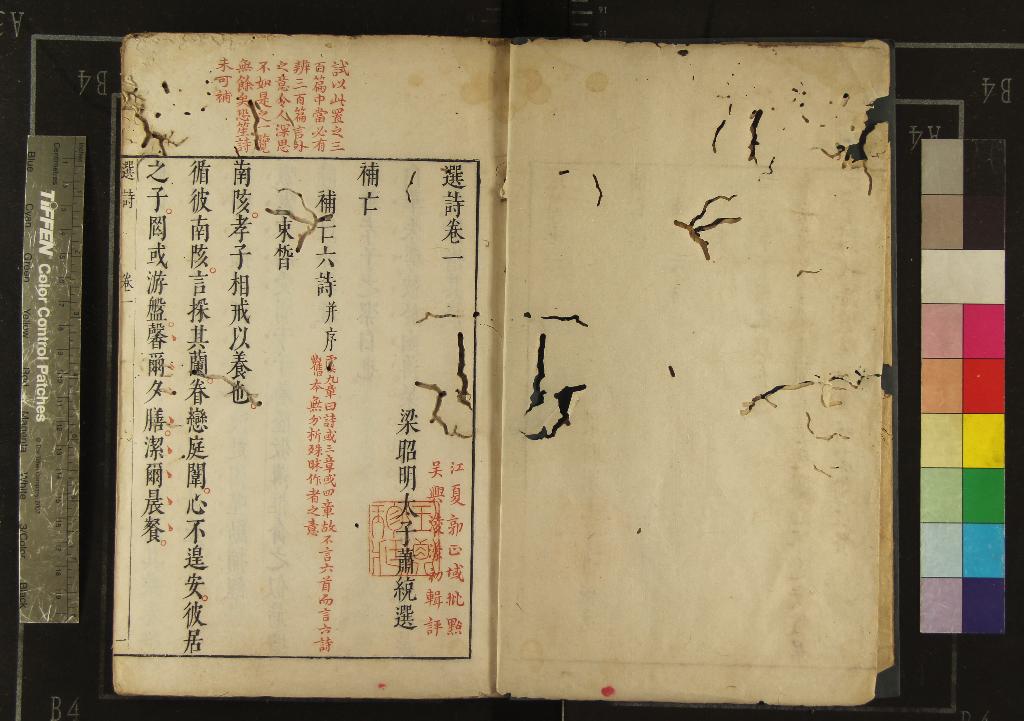 選詩卷一
梁昭明太子蕭統選
江夏郭正域批點
吳興凌濛初輯評
補亡
補亡六詩并序
雲九章曰詩或三章或四章故不言六首而言六詩
舊本無分析殊昧作者之意
束晳
南陔孝子相戒以養也
循彼南陔言採其蘭眷戀庭闈心不遑安彼居
之子罔或游盤馨爾夕膳潔爾晨餐
試以此置之三
百篇中當必有
辨三百篇言外
之意令人深思
不如是之一覽
無餘矣恐笙詩
未可補
選詩 卷一 一
TIFFEN Color Control Patches
Blue
Cyan
Green
Yellow
Red
Magenta
White
3/Color
Black
Inches
Centimetres
B4
B4
B4
A4
A3